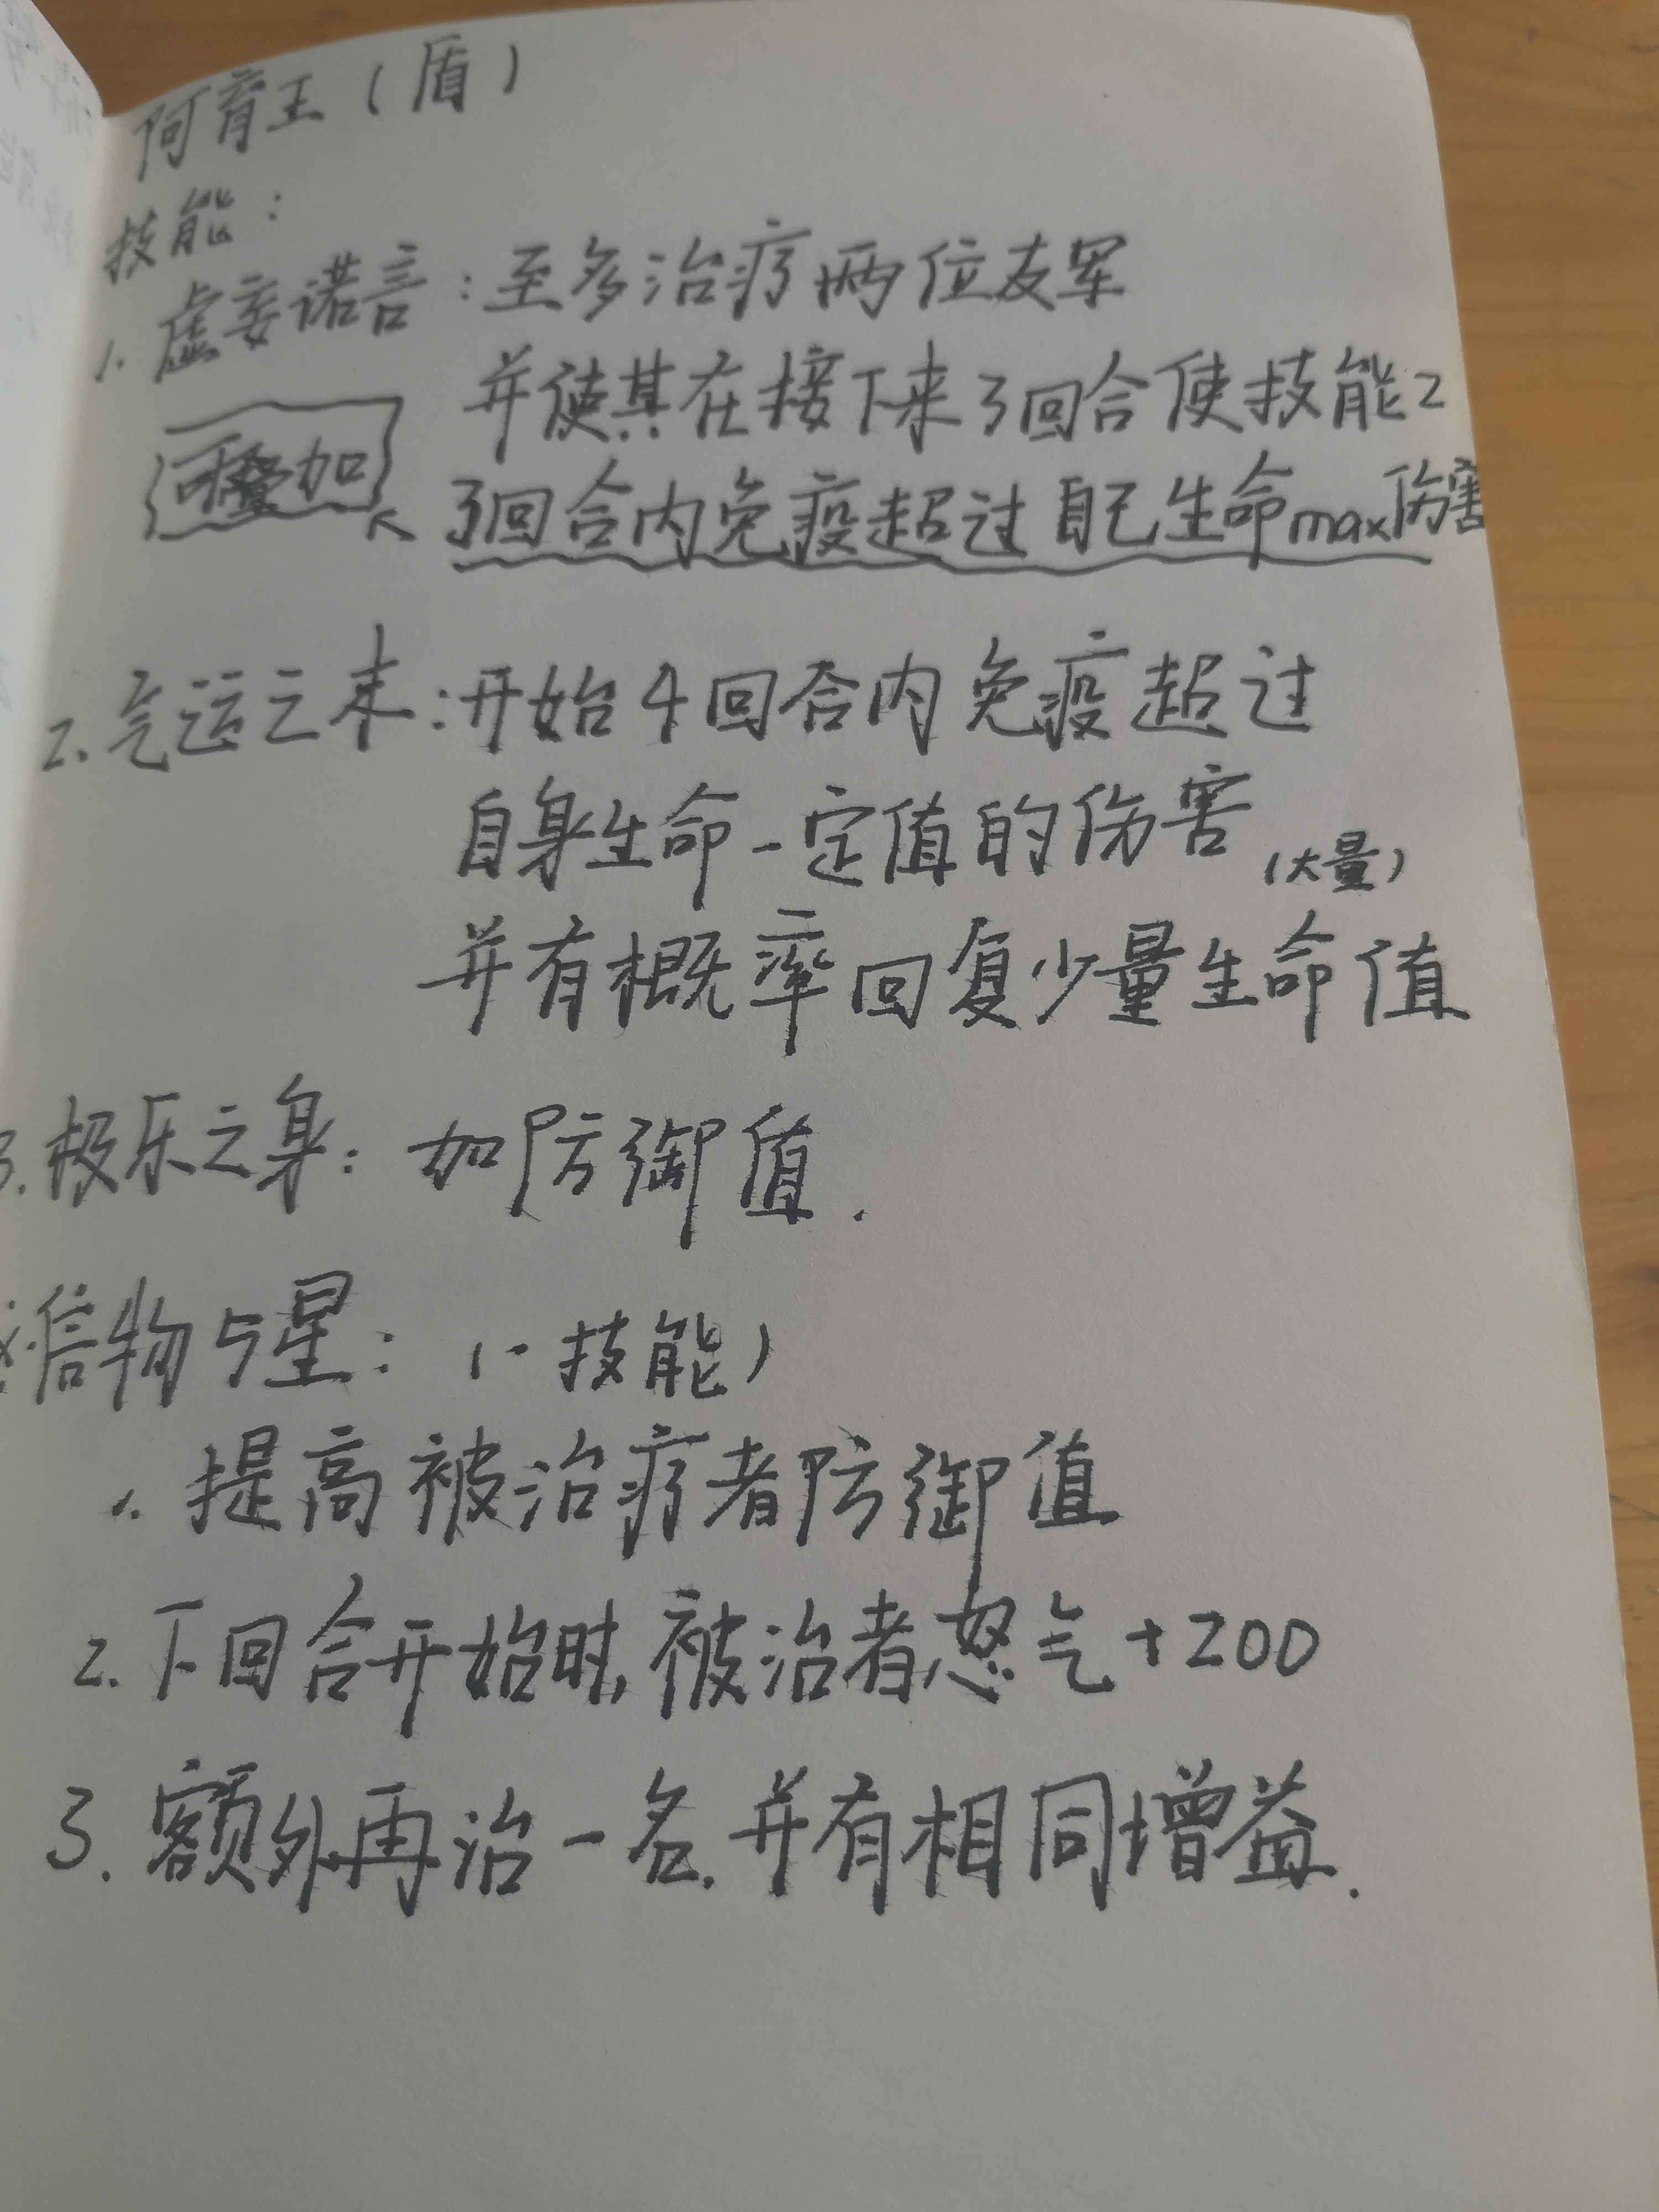 阿育王（盾）
技能：
1. 虚妄诺言：至多治疗两位友军
并使其在接下来3回合使技能2
可叠加
3回合内免疫超过自己生命max伤害
2. 气运之末：开始4回合内免疫超过
自身生命一定值的伤害（大量）
并有概率回复少量生命值
3. 极乐之身：加防御值.
※信物与星：（1·技能）
1. 提高被治疗者防御值
2. 下回合开始时,被治者怒气+200
3. 额外再治一名.并有相同增益.